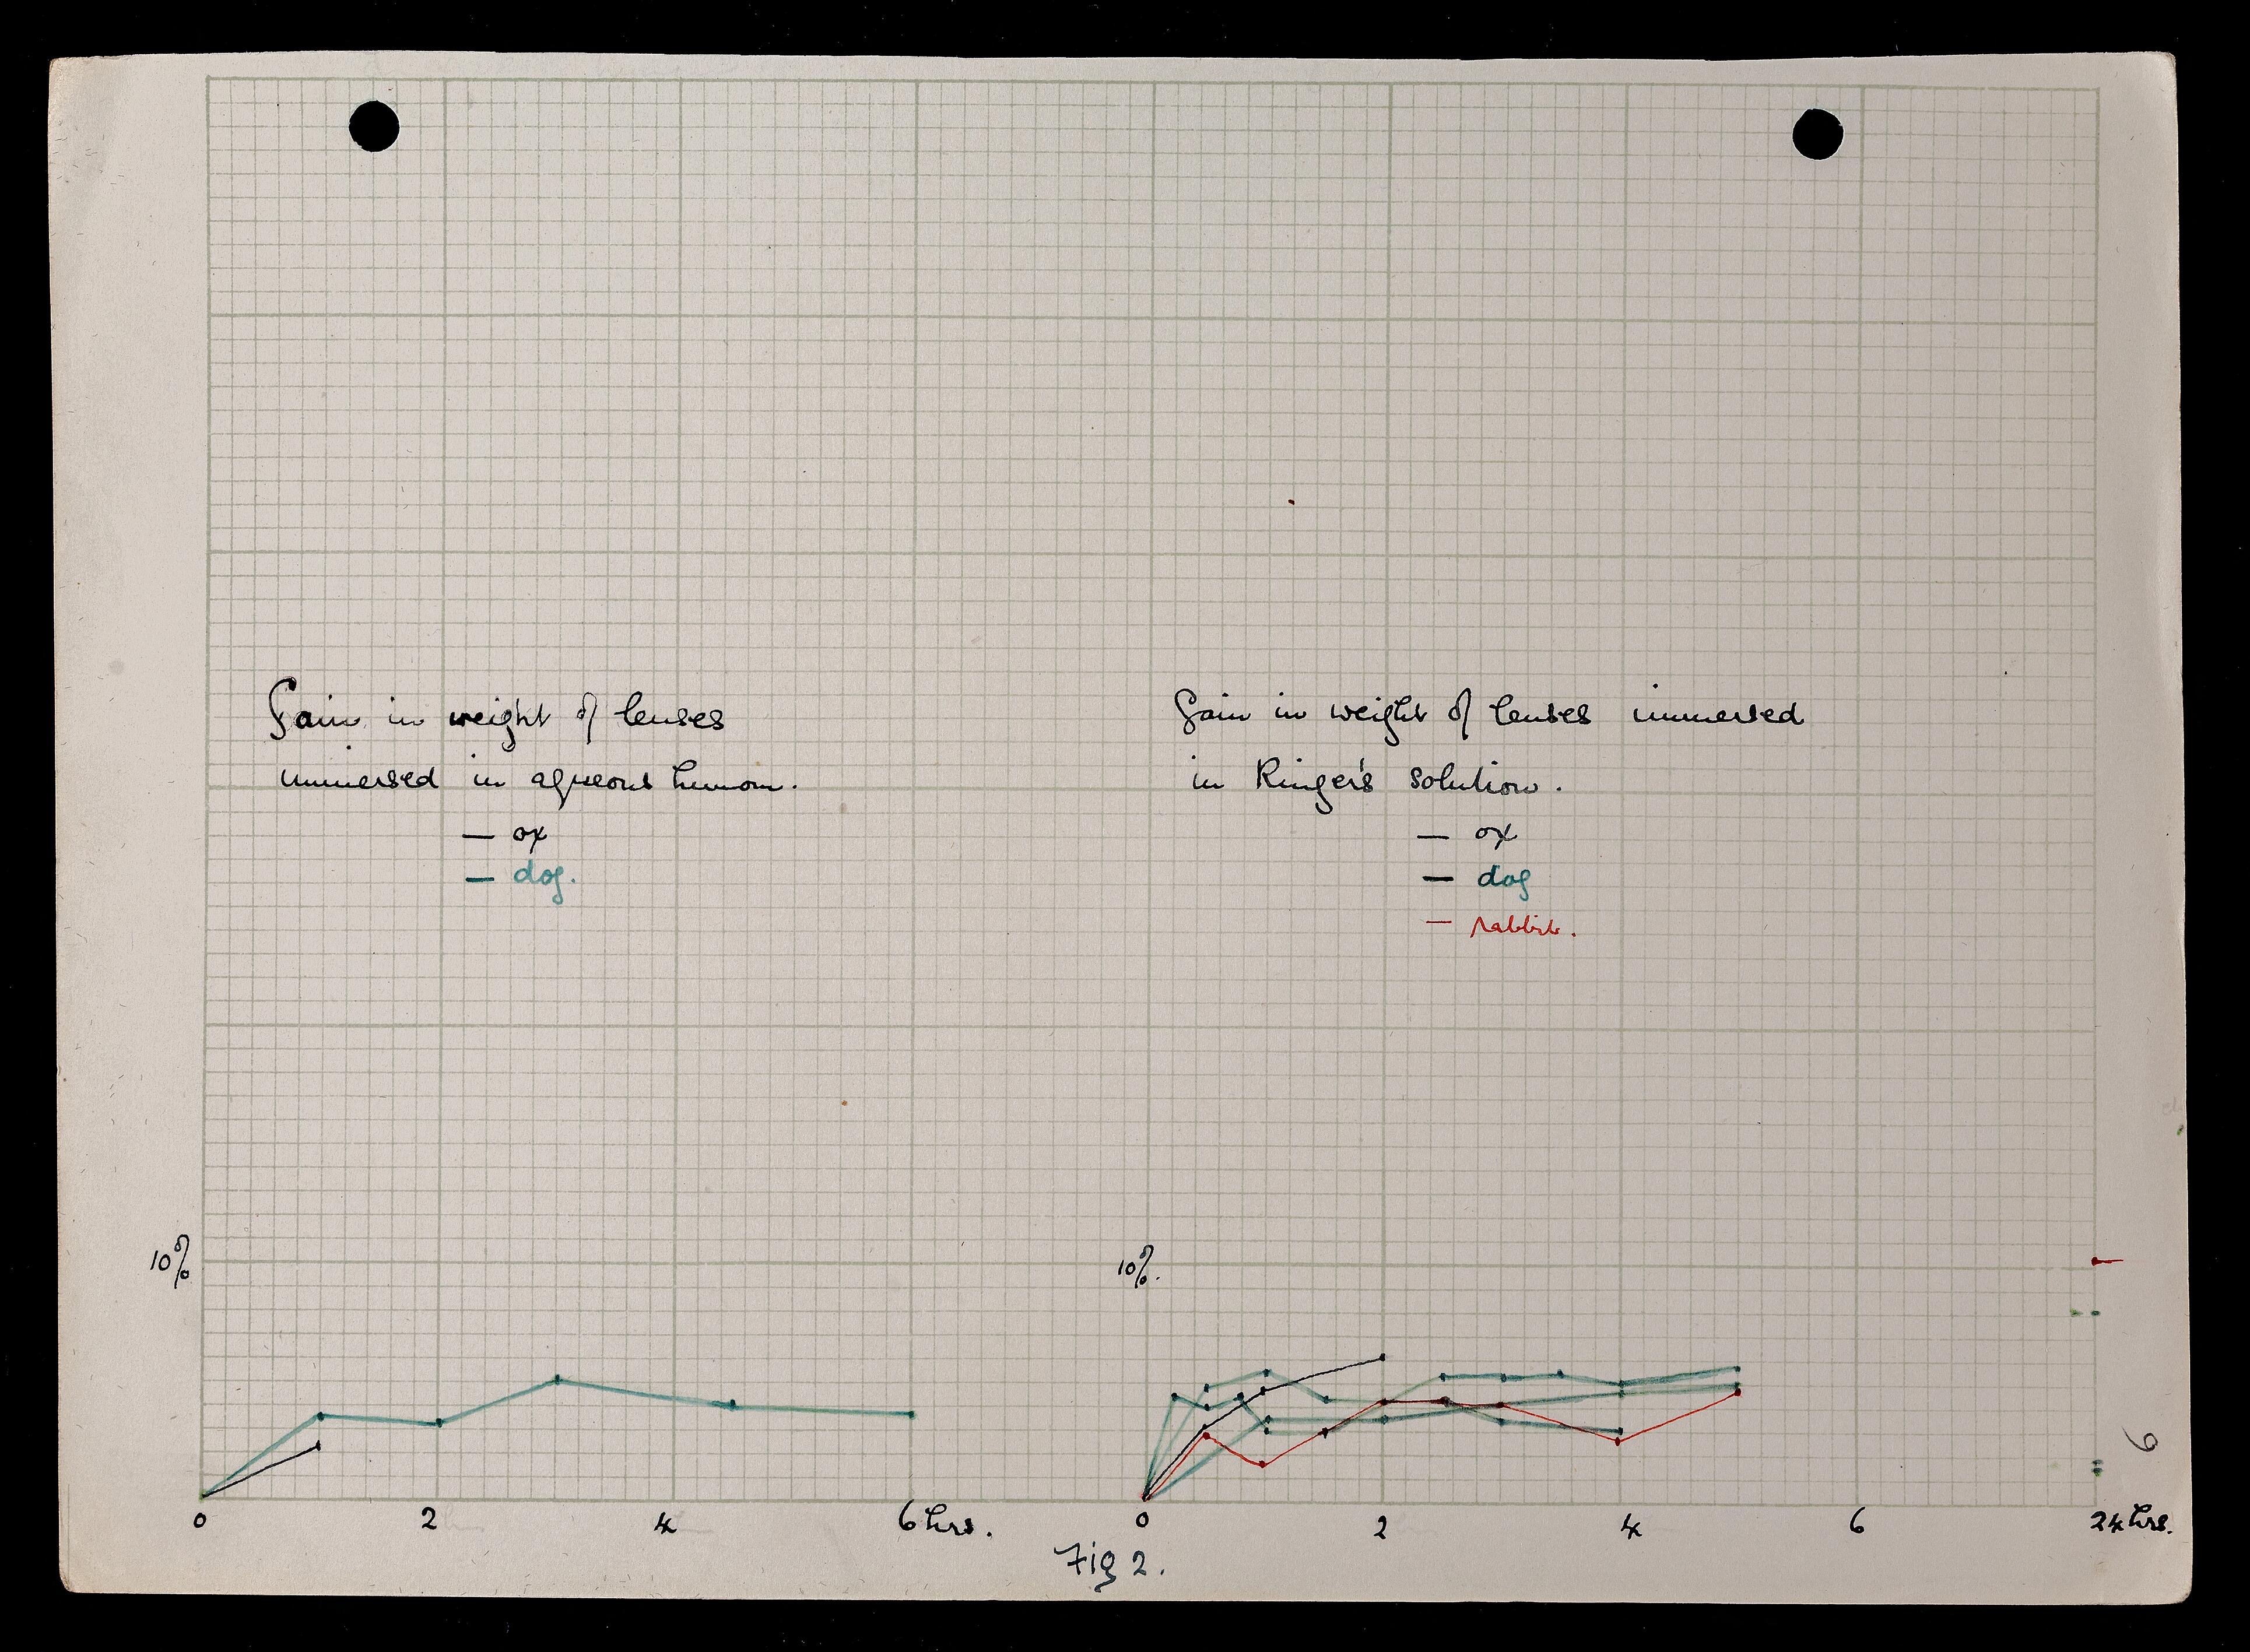 Gain in weight of lenses
immersed in aqueous humour.
— ox
— dog.
Gain in weight of lenses immersed
in Ringer's solution.
— ox
— dog
— rabbit.
10%
10%.
0 2 4 6 hrs.
0 2 4 6 24 hrs.
Fig 2.
6